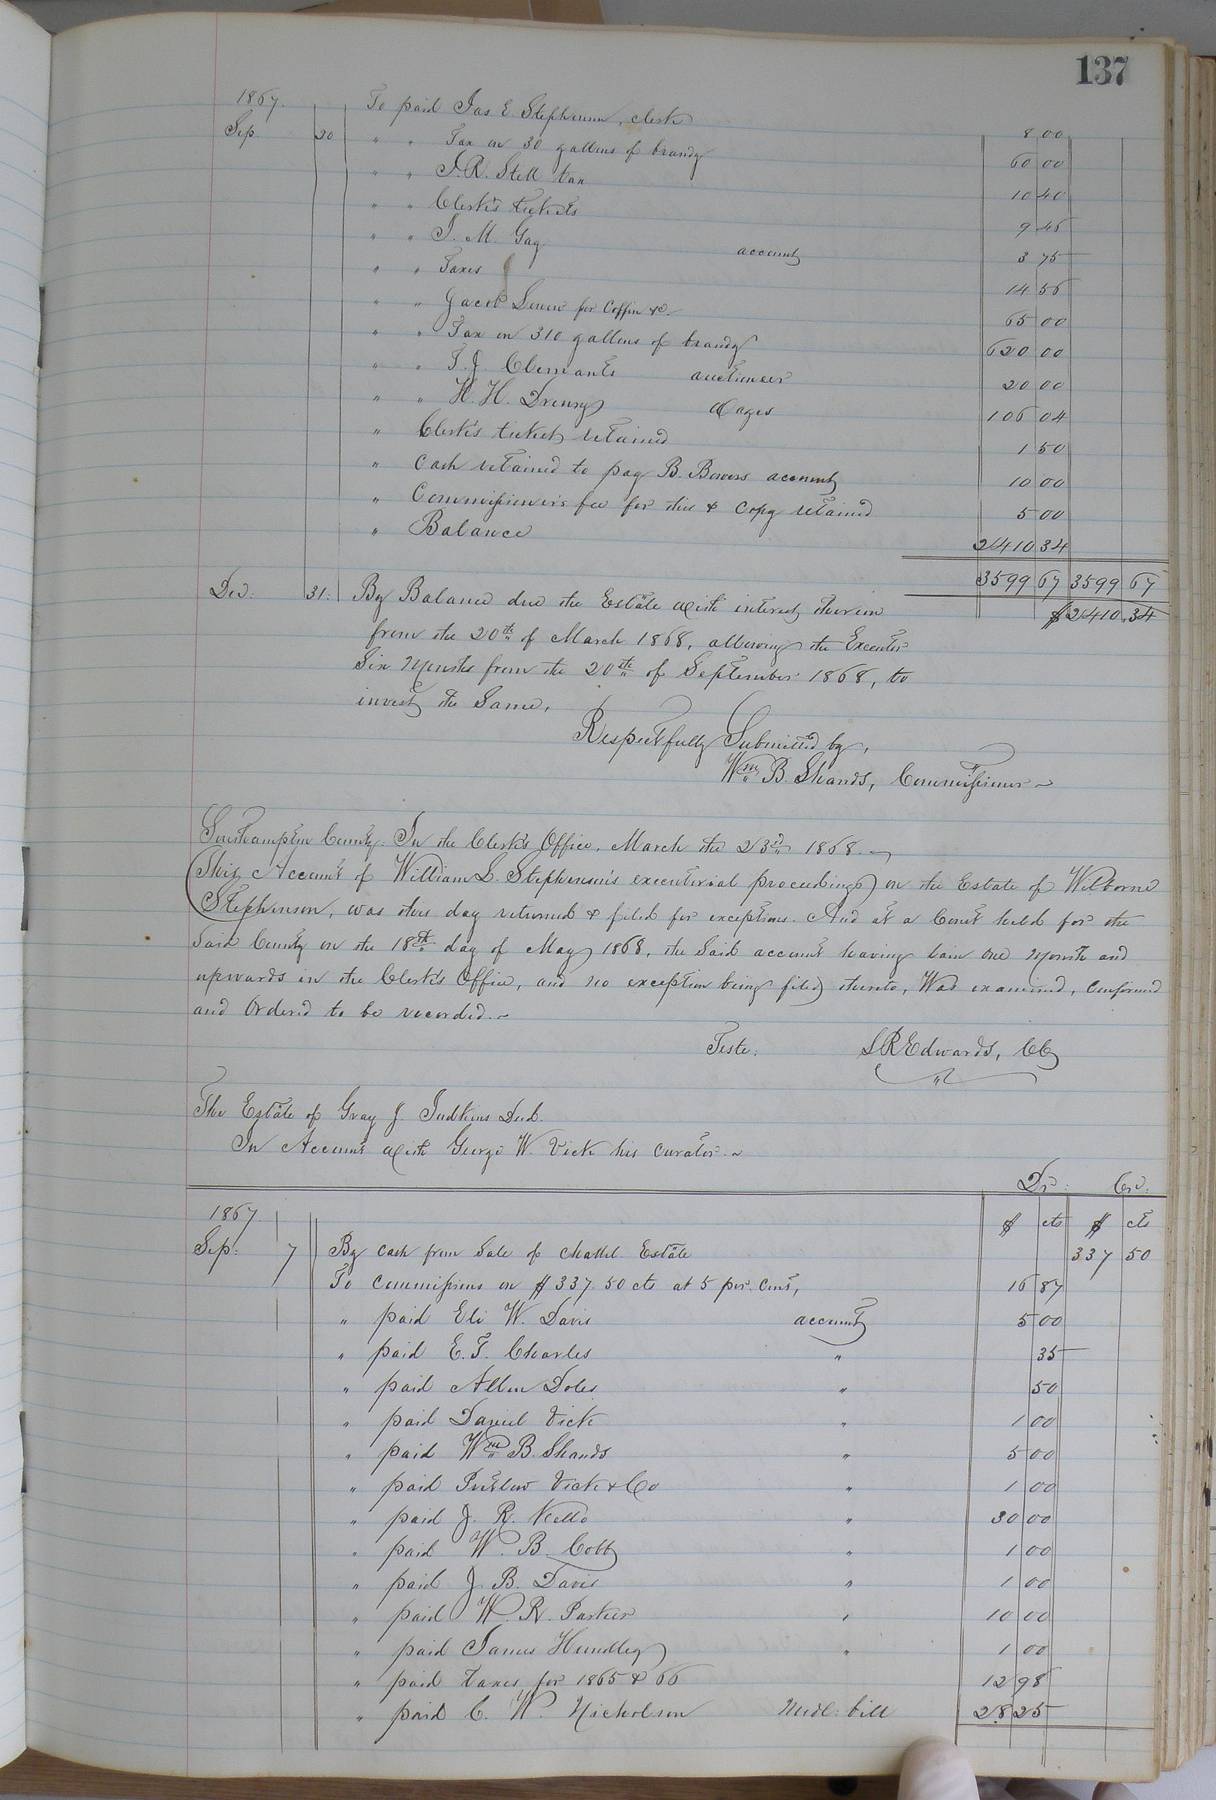 137
1867. To paid Jas E. Stephenson, clerk 8 00
Sep. 20 " " Tax on 30 gallons of brandy 60 00
" " J. R. Stell tax 10 40
" " Clerk's tickets 9 45
" " J. M. Gay account 3 75
" " Taxes 14 56
" " Jacob for Coffin &c. 65 00
" " Tax on 310 gallons of brandy 620 00
" " T. J. Clements auctioneer 20 00
" " H. H. Drewry Wages 106 04
" Clerk's tickets retained 1 50
" Cash retained to pay B. Bowers account 10 00
" Commissioner's fee for this & copy retained 5 00
" Balance 2410 34
3599 67 3599 67
Dec: 31: By Balance due the Estate with interest thereon $2410.34
from the 20th of March 1868, allowing the Executor
Six Months from the 20th of September 1868, to
invest the Same.
Respectfully Submitted by,
Wm B. Shands, Commissioner
Southampton County: In the Clerk's Office, March the 23rd 1868.
This Account of William L. Stephenson's executorial proceedings on the Estate of Wilborne
Stephenson, was this day returned & filed for exceptions. And at a Court held for the
Said County on the 18th day of May 1868, the Said account having lain one Month and
upwards in the Clerk's Office, and no exception being filed thereto, Was examined, Confirmed
and Ordered to be recorded.
Teste: L R Edwards, CC
The Estate of Gray J. Judkins Decd.
In Account with George W. Vick his curator
Dr: Cr:
1867. $ cts $ cts
Sep: 7 By cash from Sale of chattel Estate 337 50
To commissions on $337.50 cts at 5 per. Cent, 16 87
" paid Eli W. Davis account 5 00
" paid E. T. Charles " 35
" paid Allen Doles " 50
" paid Daniel Vick " 1 00
" paid Wm B. Shands " 5 00
" paid Vick & Co " 1 00
" paid J. R. " 30 00
" paid W. B. Cobb " 1 00
" paid J. B. Davis " 1 00
" paid W. R. Parker " 10 00
" paid James Hundley " 1 00
" paid taxes for 1865 & 66 12 98
" paid C. W. Nicholson Medl: bill 28 25